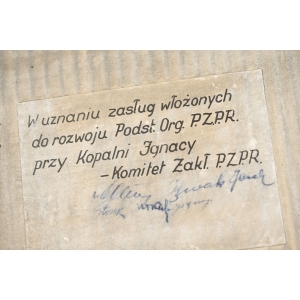 W uznaniu zasług włożonych
do rozwoju Podst. Org. P.Z.P.R.
przy Kopalni Ignacy
– Komitet Zakł. P.Z.P.R.